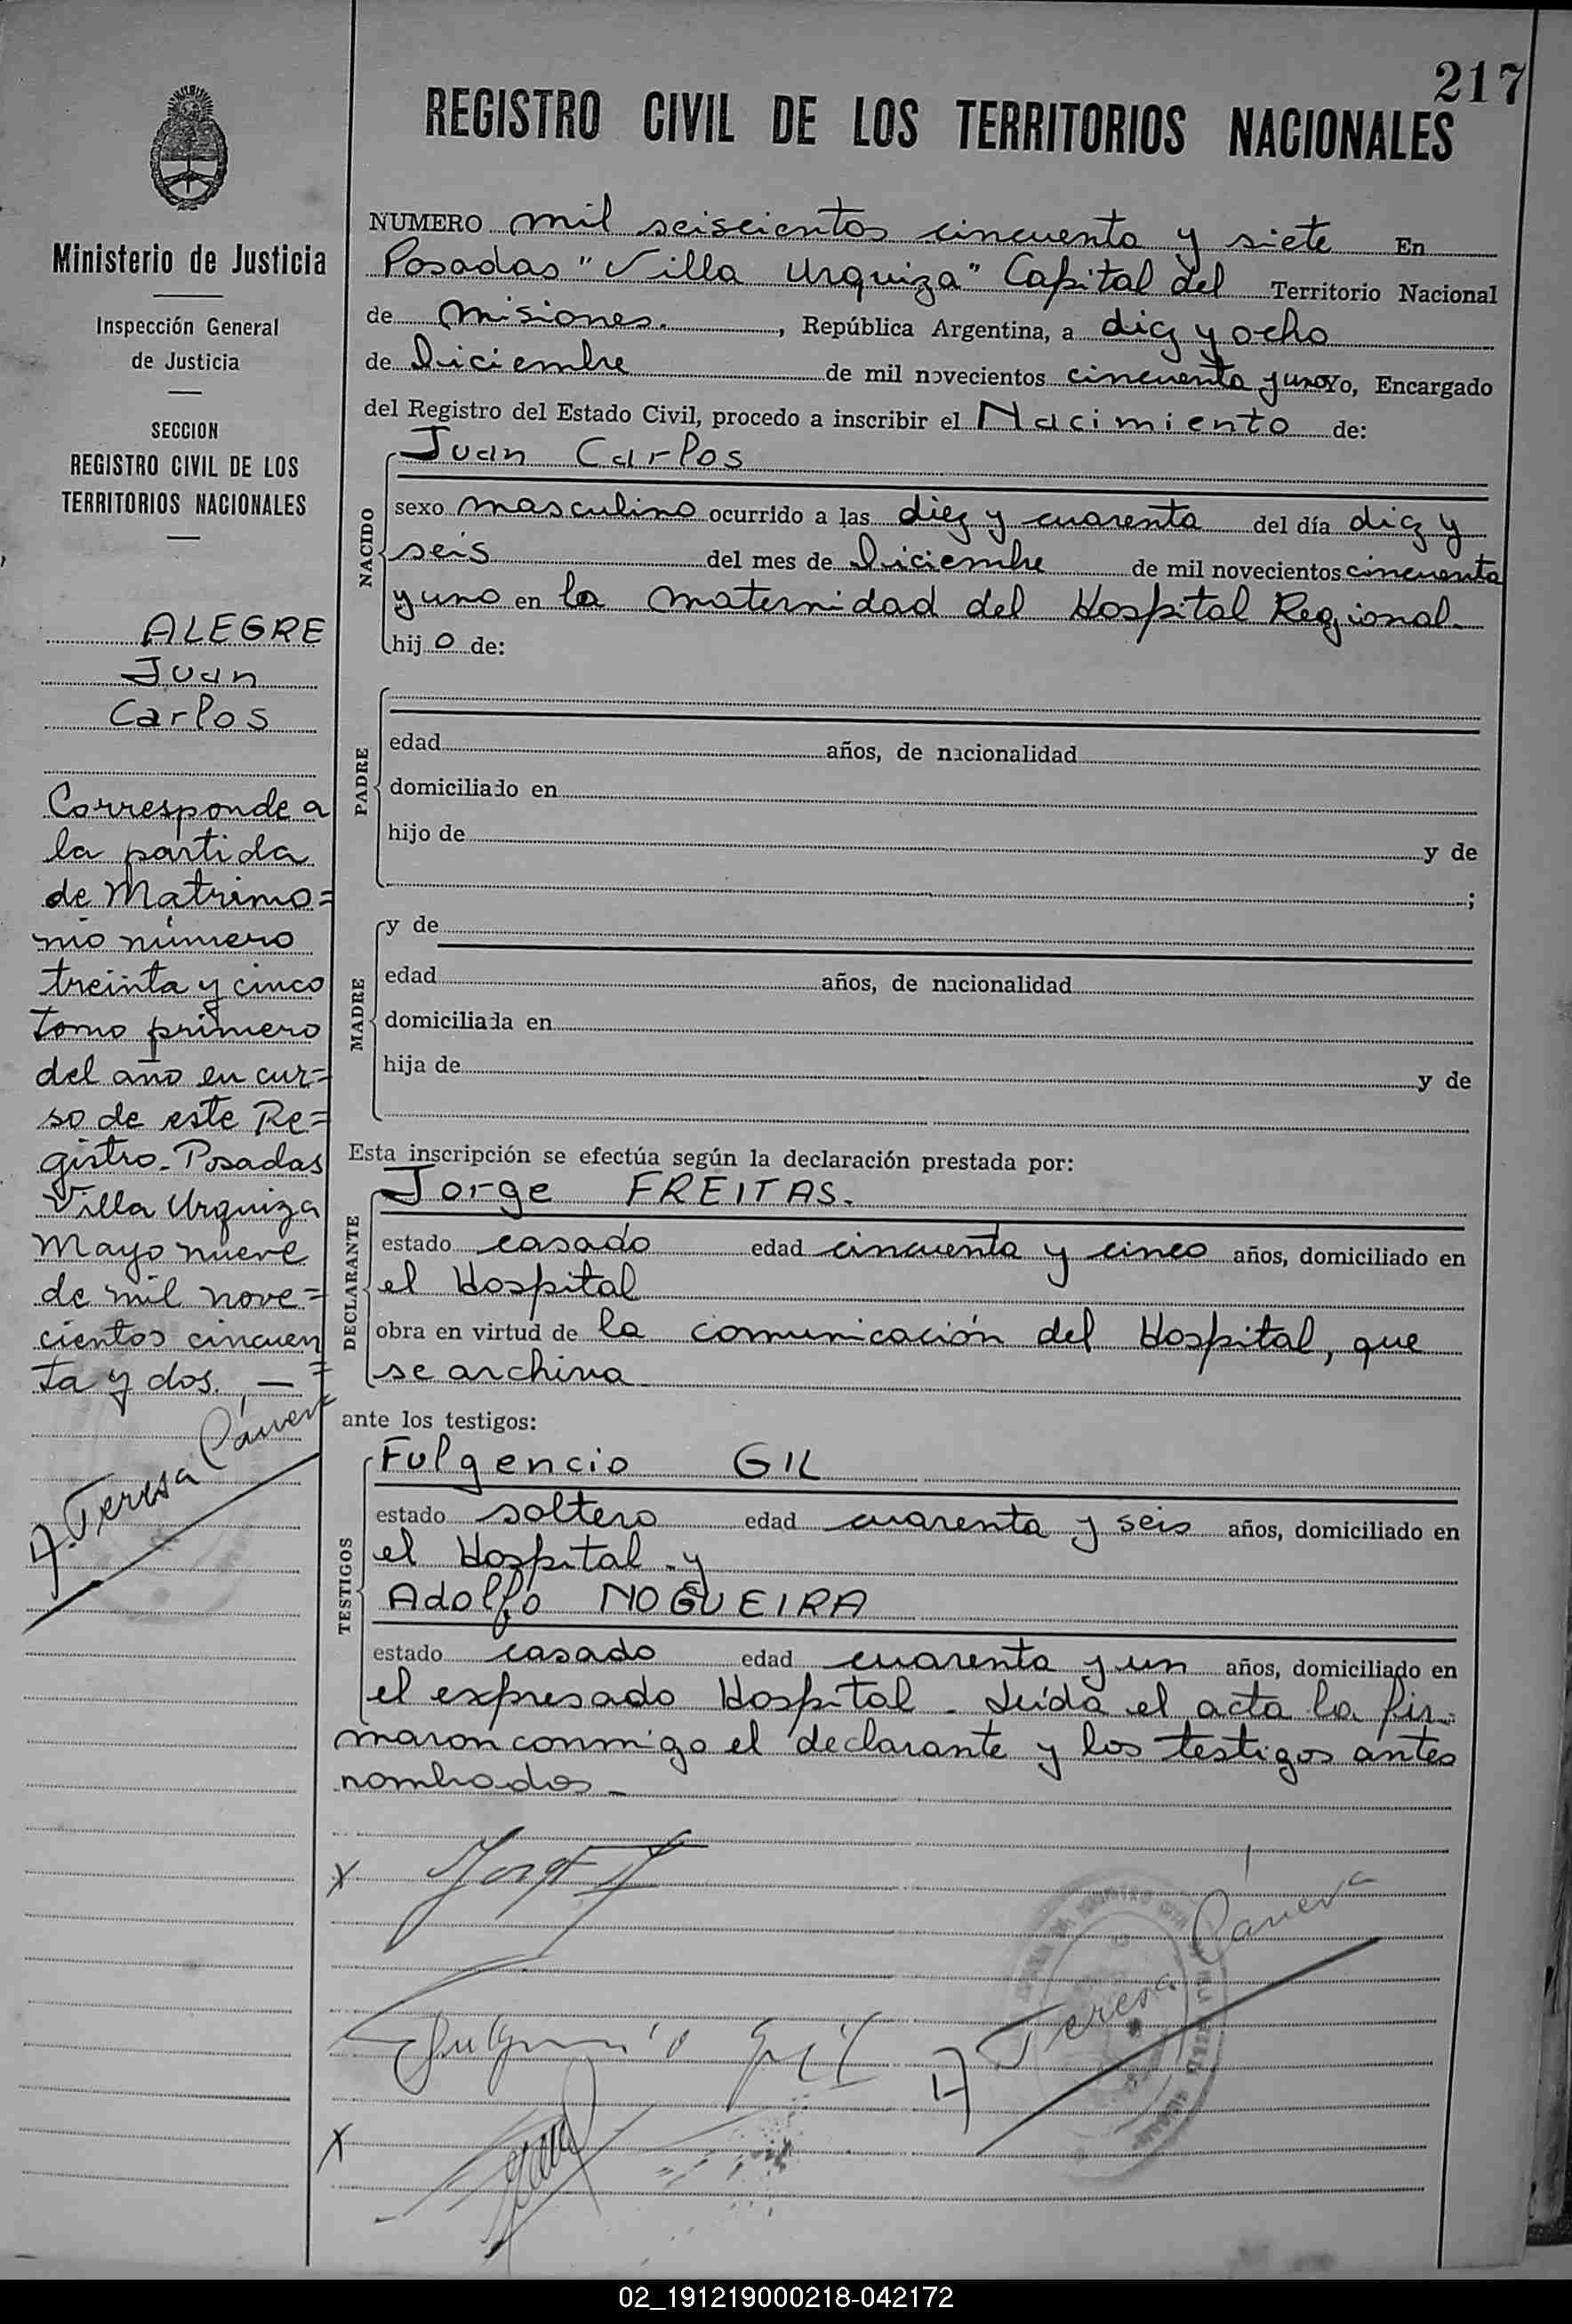 217
REGISTRO CIVIL DE LOS TERRITORIOS NACIONALES
Ministerio de Justicia
Inspección General
de Justicia
SECCION
REGISTRO CIVIL DE LOS
TERRITORIOS NACIONALES
ALEGRE
Juan
Carlos
Corresponde a
la partida
de Matrimo=
nio número
treinta y cinco
tomo primero
del año en cur=
so de este Re=
gistro. Posadas
Villa Urquiza
Mayo nueve
de mil nove=
cientos cincuen
ta y dos. —
A. Teresa Cáneva
NUMERO mil seiscientos cincuenta y siete En
Posadas "Villa Urquiza" Capital del Territorio Nacional
de Misiones. , República Argentina, a diez y ocho
de Diciembre de mil novecientos cincuenta y uno Yo, Encargado
del Registro del Estado Civil, procedo a inscribir el Nacimiento de:
NACIDO
Juan Carlos
sexo masculino ocurrido a las diez y cuarenta del día diez y
seis del mes de Diciembre de mil novecientos cincuenta
y uno en la maternidad del Hospital Regional.
hij o de:
PADRE
edad años, de nacionalidad
domiciliado en
hijo de y de
;
MADRE
y de
edad años, de nacionalidad
domiciliada en
hija de y de
Esta inscripción se efectúa según la declaración prestada por:
DECLARANTE
Jorge FREITAS.
estado casado edad cincuenta y cinco años, domiciliado en
el Hospital
obra en virtud de la comunicación del Hospital, que
se archiva
ante los testigos:
TESTIGOS
Fulgencio GIL
estado soltero edad cuarenta y seis años, domiciliado en
el Hospital y
Adolfo NOGUEIRA
estado casado edad cuarenta y un años, domiciliado en
el expresado Hospital. Leída el acta la fir-
maron conmigo el declarante y los testigos antes
nombrados.
x
Fulgencio Gil
A Teresa Cáneva
x
02_191219000218-042172